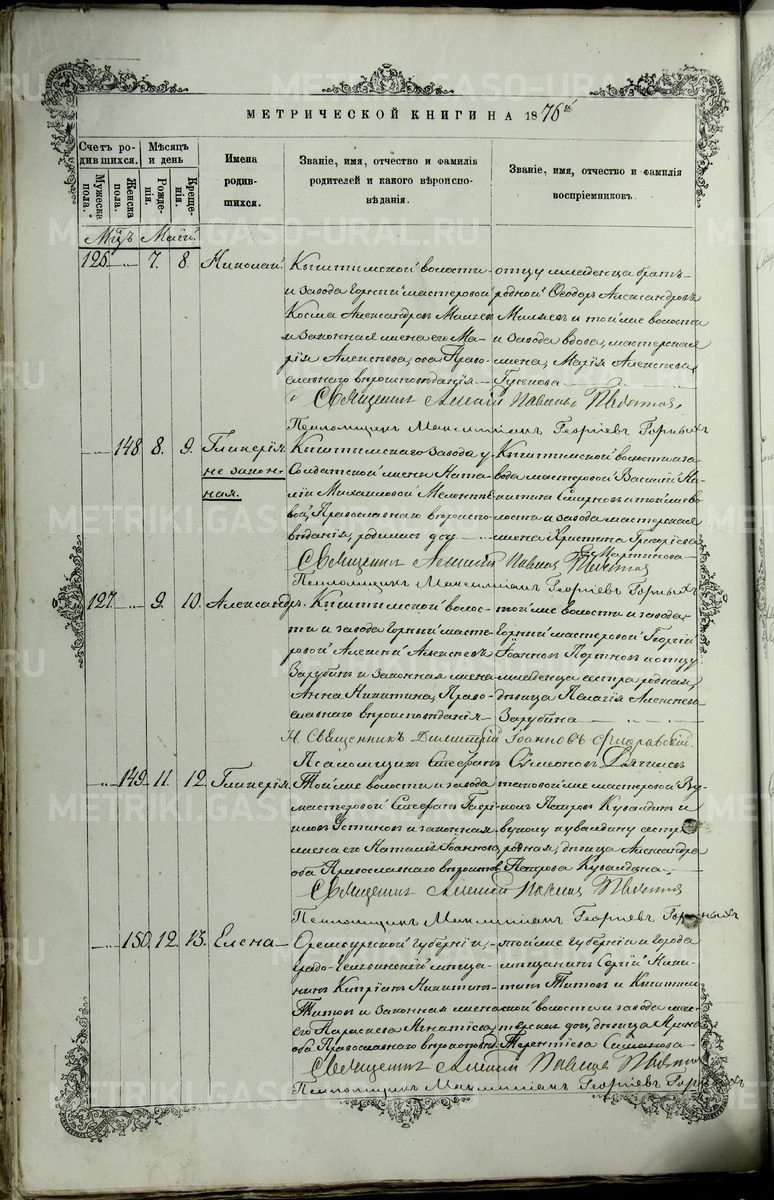 МЕТРИЧЕСКОЙ КНИГИ НА 1876й
Счетъ родившихся.
Мужеска пола.
Женска пола.
Мѣсяцъ и день
Рожденія.
Крещенія.
Имена родившихся.
Званіе, имя, отчество и фамилія родителей и какого вѣроисповѣданія.
Званіе, имя, отчество и фамилія воспріемниковъ.
Мцъ Маій.
126 7. 8. Николай.
Кыштымской волости
и завода горный мастеровой
Косма Александровъ
и законная жена его Ма-
рія Алексѣева, оба Право-
славнаго вѣроисповѣданія
отцу младенца братъ
родной Ѳеодоръ Александровъ
и той же волости
и завода вдова, мастерская
жена, Марія Алексѣева
Гускова
Священникъ Алексій
Псаломщикъ Максимиліанъ Георгіевъ Горныхъ
148 8. 9. Гликерія
не закон-
ная.
Кыштымскаго завода у
Солдатской жены Ната-
ліи Михаиловой Мелентье-
вой, Православнаго вѣроиспо-
вѣданія, родилась дочь
Кыштымской волости и за-
вода мастеровой Василій Ни-
китинъ Смирновъ и той же во-
лости и завода мастерская
жена Христина Григоріева
Мартынова
Священникъ Алексій
Псаломщикъ Максимиліанъ Георгіевъ Горныхъ
127 9. 10. Александръ.
Кыштымской волос-
ти и завода горный масте-
ровой Алексій Алексѣевъ
Зарубинъ и законная жена
Анна Никитина, Право-
славнаго вѣроисповѣданія
той же волости и завода
Горный мастеровой Георгій
Іоанновъ Портновъ и отцу
младенца сестра родная,
дѣвица Пелагія Алексѣева
Зарубина
Священникъ Димитрій Іоанновъ
Псаломщикъ Стефанъ Симеоновъ
149 11. 12. Гликерія.
Той же волости и завода
мастеровой Стефанъ Гаврі-
иловъ Устиновъ и законная
жена его Наталія Іоаннова,
оба Православнаго вѣроиспов.
таковой же мастеровой Ву-
колъ Петровъ Кувалдинъ и
Вуколу Кувалдину сестра
родная, дѣвица Александра
Петрова Кувалдина
Священникъ Алексій
Псаломщикъ Максимиліанъ Георгіевъ Горныхъ
150. 12. 13. Елена
Оренбургской губерніи,
градо-Челябинскій мѣща-
нинъ Кипріанъ Никитинъ
Титовъ и законная жена
его Параскева Игнатіева,
оба Православнаго вѣроисповѣд.
той же губерніи и города
мѣщанинъ Сергій Ники-
тинъ Титовъ и Кыштым-
ской волости и завода мас-
терская дочь, дѣвица Ирина
Терентіева
Священникъ Алексій
Псаломщикъ Максимиліанъ Георгіевъ Горныхъ
METRIKI.GASO-URAL.RU